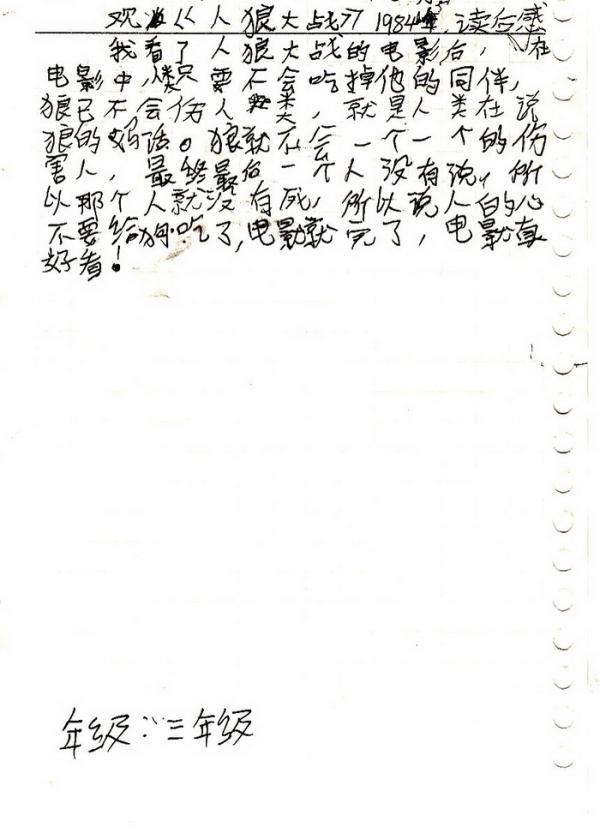 观《《人狼大战》》1984年,读后感
我看了人狼大战的电影后,在
电影中,人类只要不会吃掉他的同伴,
狼已不会伤人类,就是人类在说
狼的坏话。狼就不会一个一个的伤
害人,最终最后一个人没有说,所
以那个人就没有死,所以说人的心
不要给狗吃了,电影就完了,电影真
好看!
年级:三年级